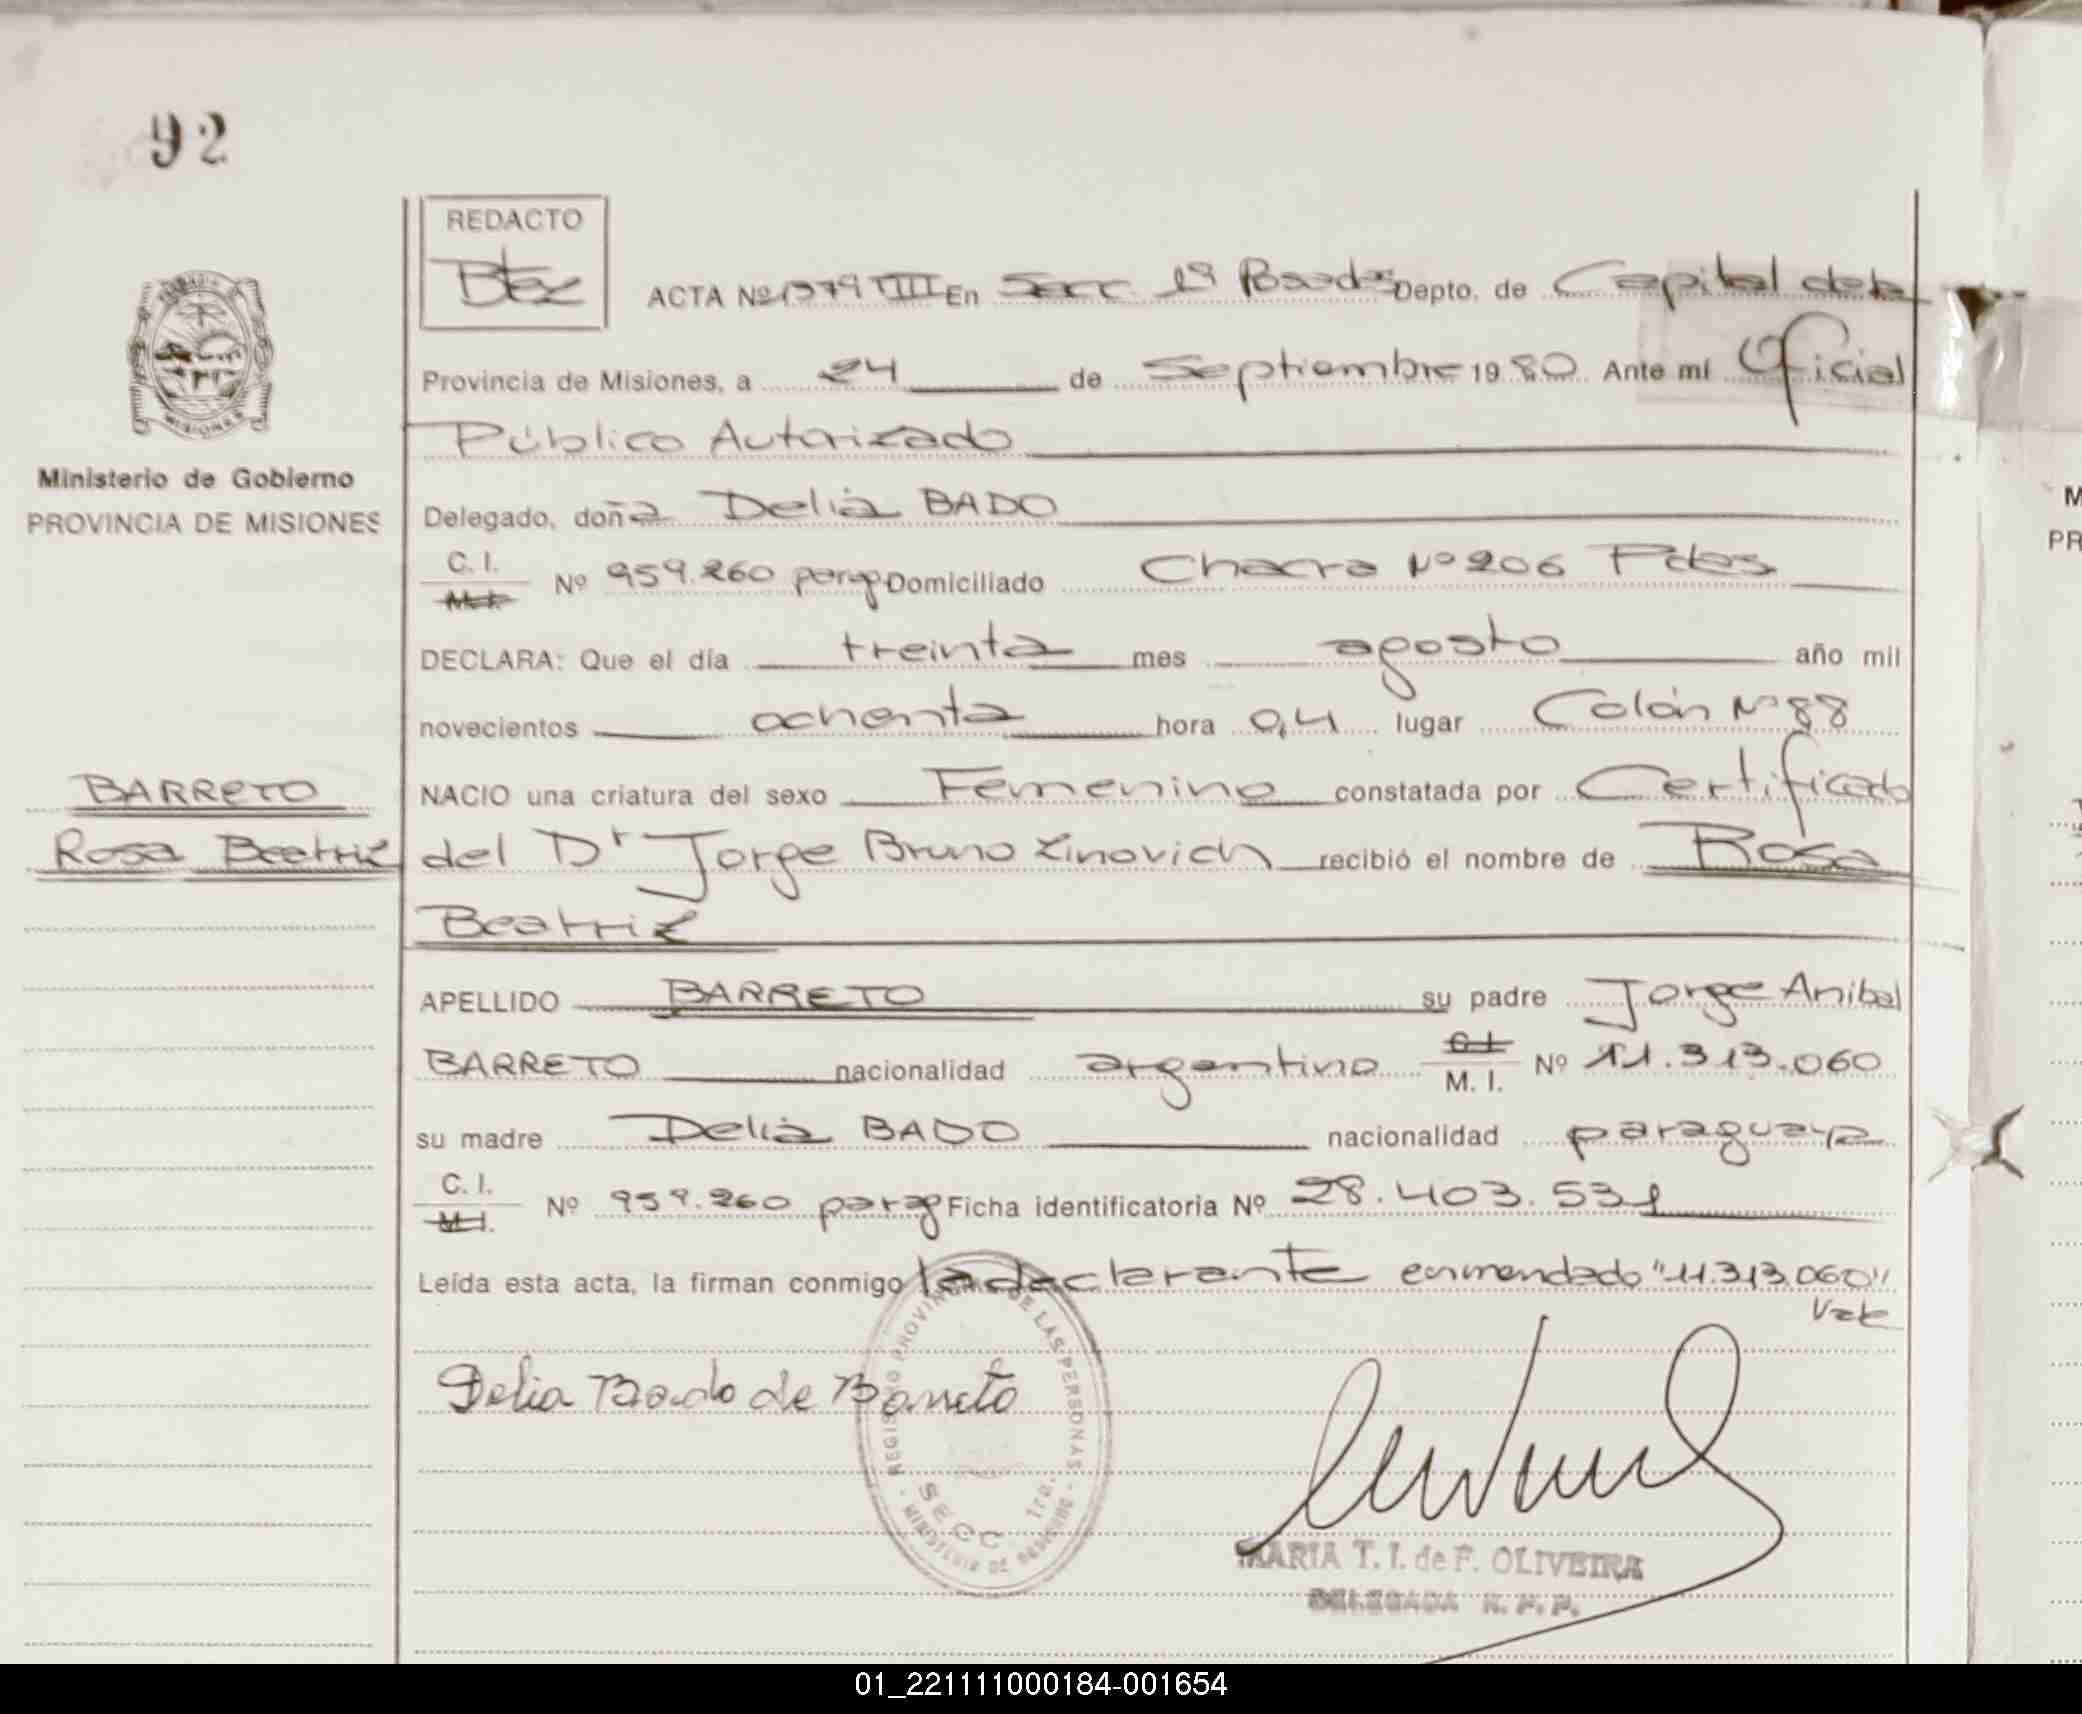 92
REDACTO
Btez
ACTA Nº 1379 TIII En Secc. 1ª Posadas Depto. de Capital de la
Provincia de Misiones, a 24 de Septiembre 1980 Ante mí Oficial
Público Autorizado
Delegado, doña Delia BADO
C. I.
M. I.
Nº 959.260 parag Domiciliado Chacra Nº 206 Pdas
DECLARA: Que el día treinta mes agosto año mil
novecientos ochenta hora 04 lugar Colón Nº 88
NACIO una criatura del sexo Femenino constatada por Certificado
del Dr Jorge Bruno Zinovich recibió el nombre de Rosa
Beatriz
APELLIDO BARRETO su padre Jorge Anibal
BARRETO nacionalidad argentino C. I.
M. I. Nº 11.313.060
su madre Delia BADO nacionalidad paraguaya
C. I.
M. I.
Nº 959.260 parag Ficha identificatoria Nº 28.403.531
Leída esta acta, la firman conmigo la declarante enmendado "11.313.060"
Vale
Delia Bado de Barreto
REGISTRO PROVINCIAL DE LAS PERSONAS
SECC 1ra.
MINISTERIO DE GOBIERNO
MARIA T. I. de F. OLIVEIRA
DELEGADA R. P. P.
MISIONES
Ministerio de Gobierno
PROVINCIA DE MISIONES
BARRETO
Rosa Beatriz
M
PR
01_221111000184-001654